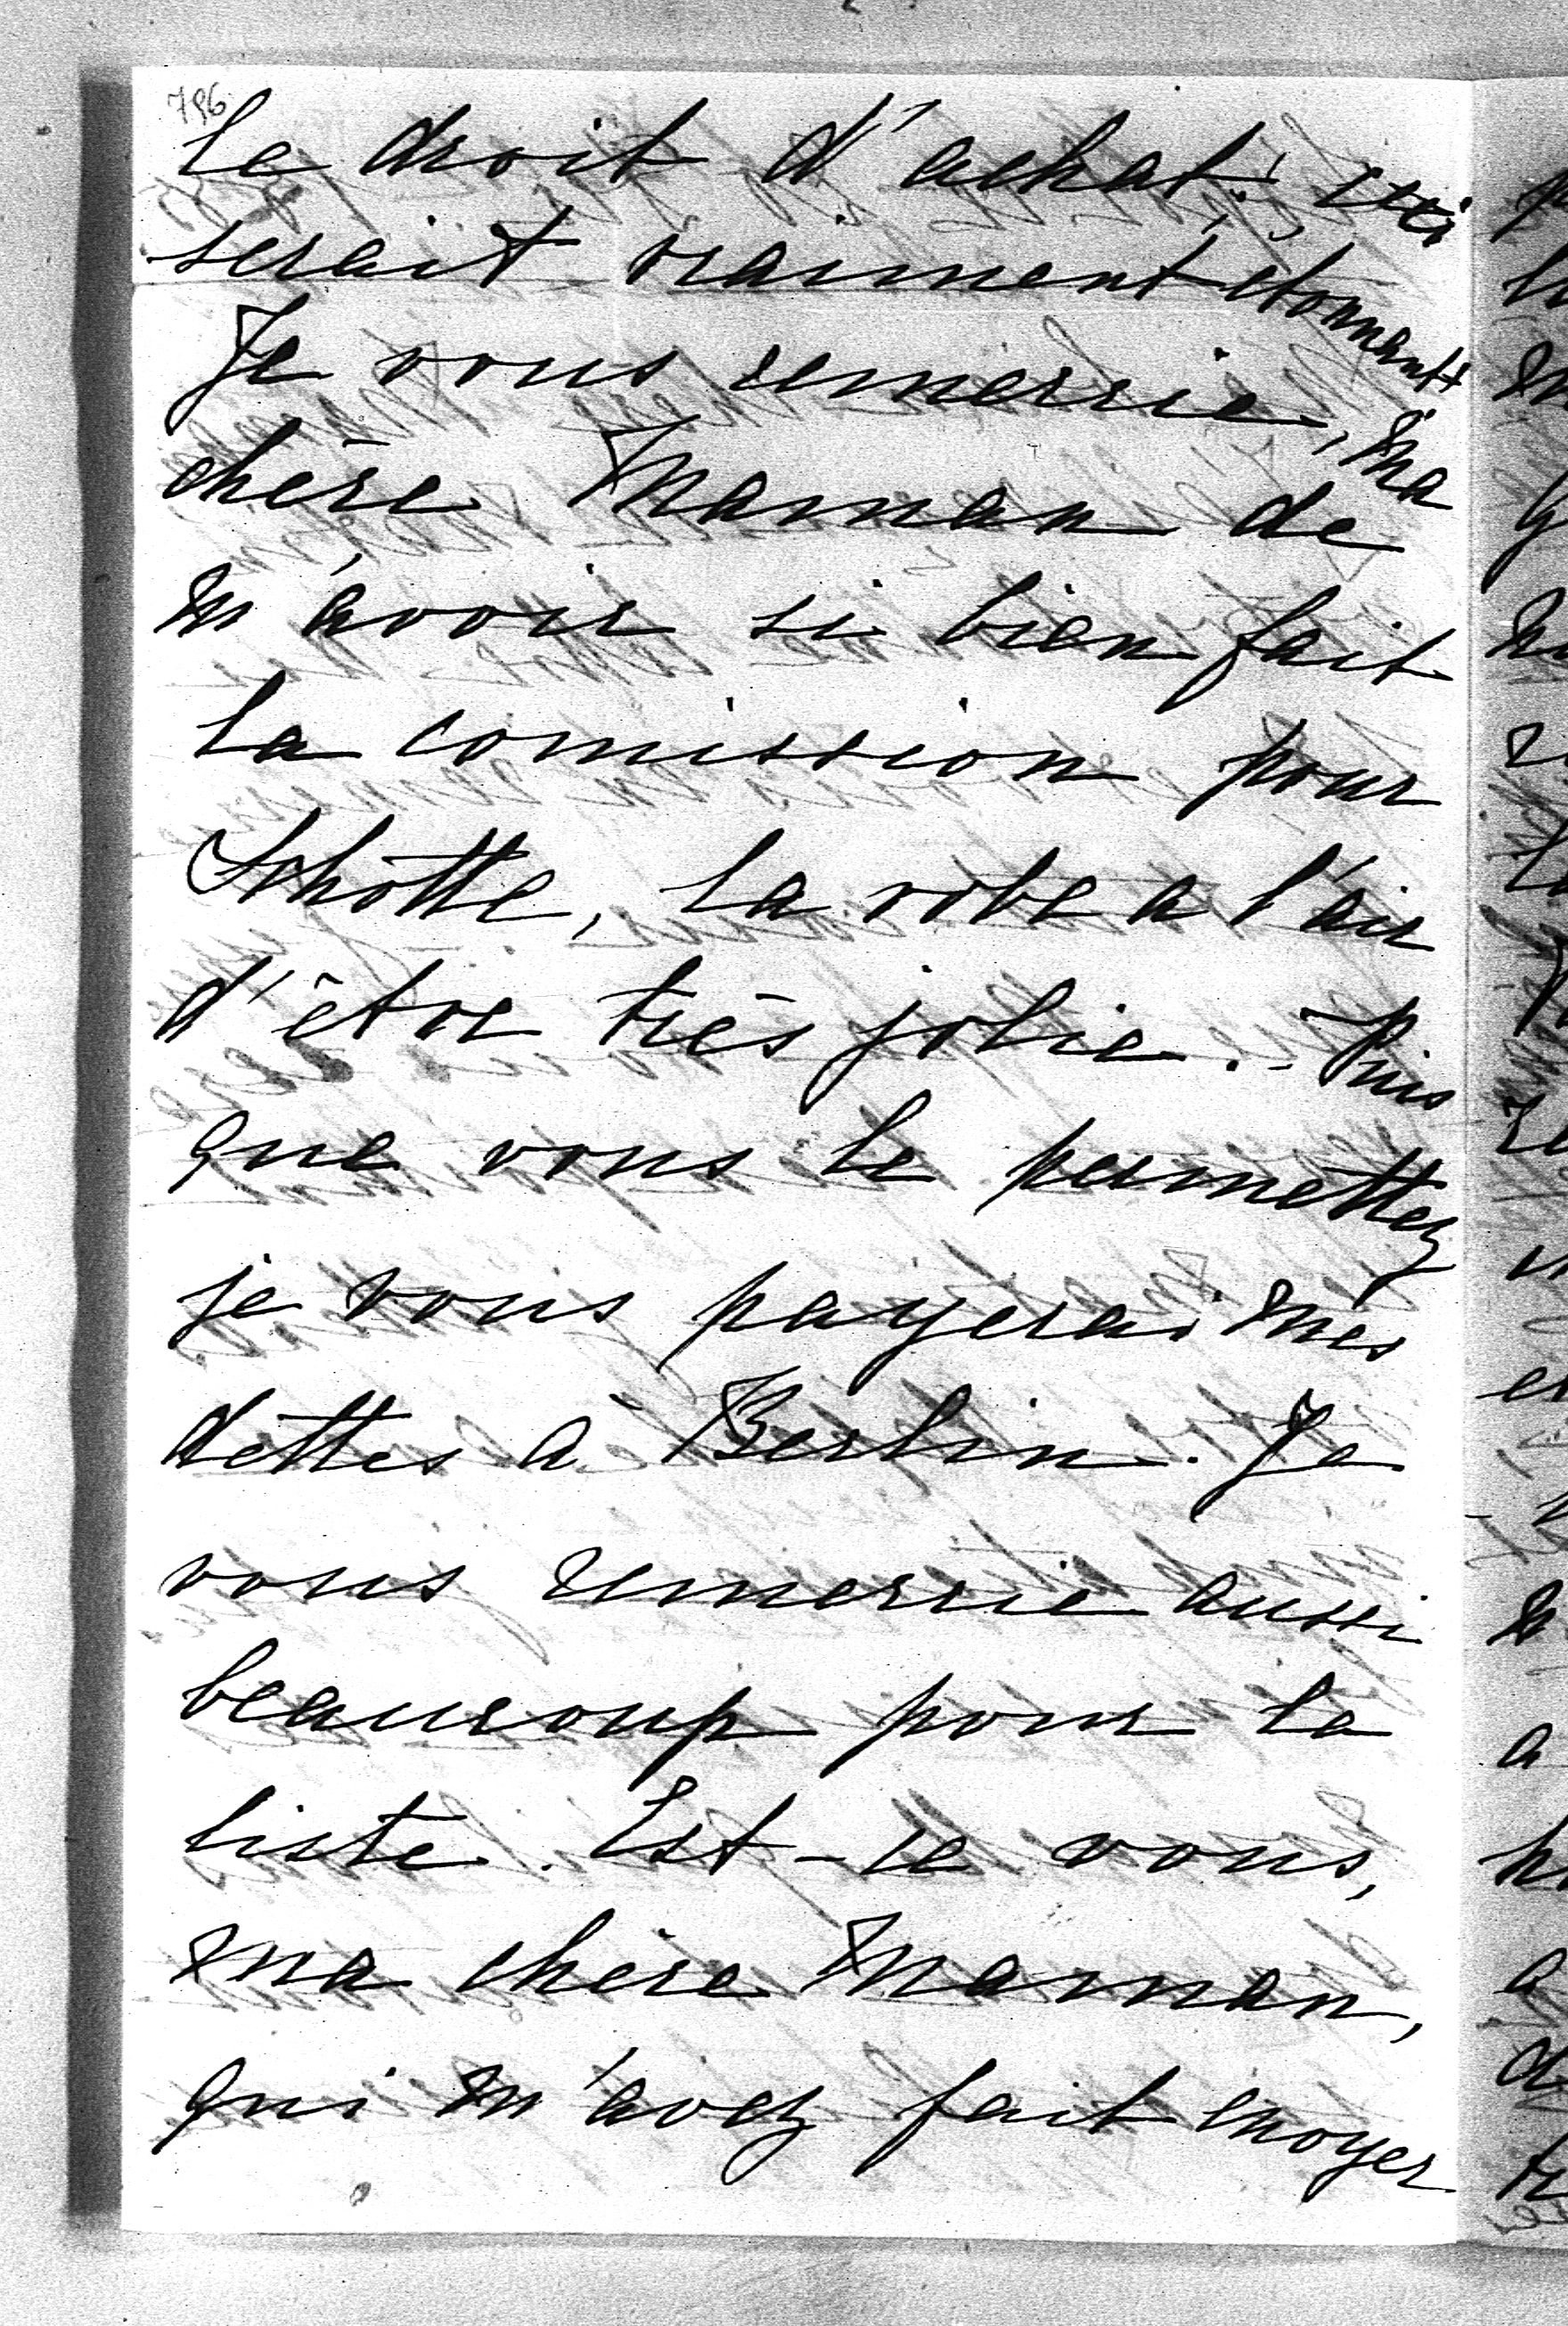 796
le droit d'achat; ceci
serait vraiment étonnant!
Je vous remercie, ma
chère Maman de
m'avoir si bien fait
la comission pour
Schotte, la robe a l'air
d'être très jolie. - Puis
que vous le permettez
je vous payerai mes
dettes à Berlin. Je
vous remercie aussi
beaucoup pour la
liste. Est-ce vous,
ma chère Maman,
qui m'avez fait envoyer